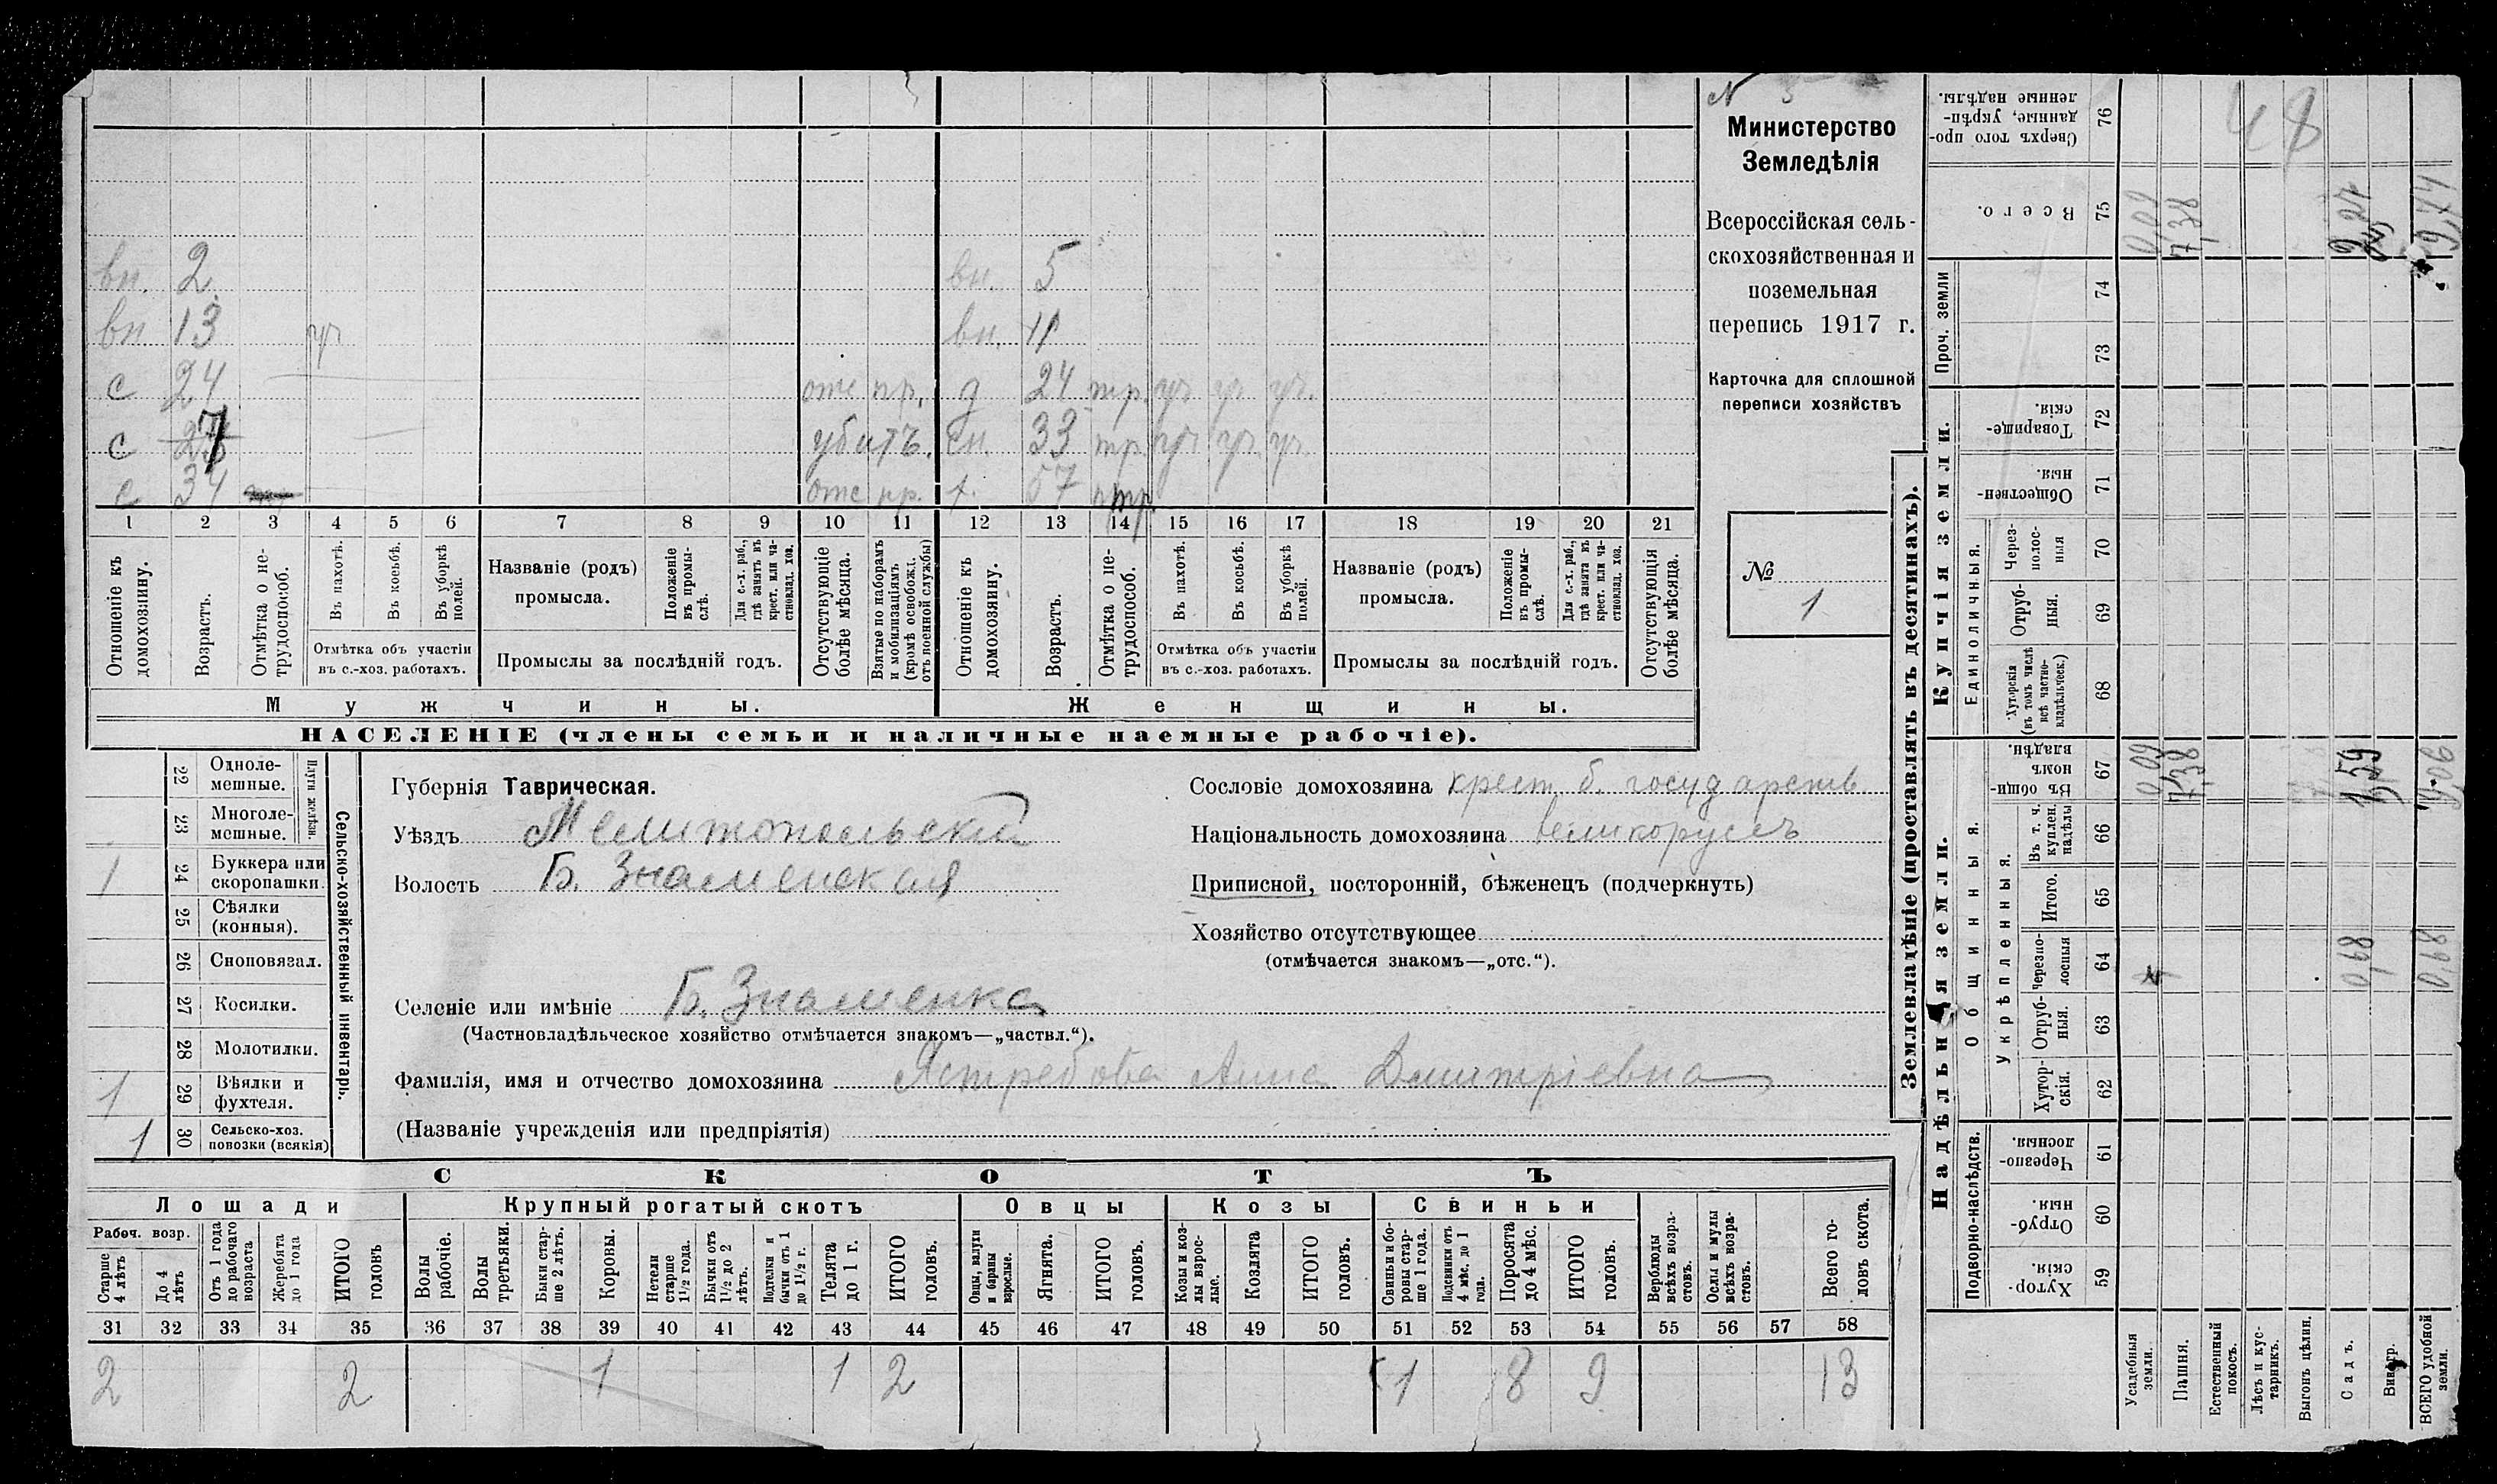 вн. 2 вн. 5
вн 13 уч вн. 11
с 24 отс пр. д 24 тр. уч уч уч.
с 7 убитъ. сн. 33 тр. уч уч. уч.
с 34 отс пр. 57 тр
1 2 3 4 5 6 7 8 9 10 11 12 13 14 15 16 17 18 19 20 21
Отношеніе къ домохозяину.
Возрастъ.
Отмѣтка о не-
трудоспособ.
Въ пахотѣ.
Въ косьбѣ.
Въ уборкѣ полей.
Отмѣтка объ участіи
въ с.-хоз. работахъ.
Названіе (родъ)
промысла.
Положеніе
въ промы-
слѣ.
Для с.-х. раб.,
гдѣ занятъ въ
крест. или ча-
стновлад. хоз.
Промыслы за послѣдній годъ.
Отсутствующіе
болѣе мѣсяца.
Взятые по наборамъ
и мобилизаціямъ
(кромѣ освобожд.
отъ военной службы)
Отношеніе къ
домохозяину.
Возрастъ.
Отмѣтка о не-
трудоспособ.
Въ пахотѣ.
Въ косьбѣ.
Въ уборкѣ
полей.
Отмѣтка объ участіи
въ с.-хоз. работахъ.
Названіе (родъ)
промысла.
Положеніе
въ промы-
слѣ.
Для с.-х. раб.,
гдѣ занята въ
крест. или ча-
стновлад. хоз.
Промыслы за послѣдній годъ.
Отсутствующія
болѣе мѣсяца.
Мужчины.
Женщины.
НАСЕЛЕНІЕ (члены семьи и наличные наемные рабочіе).
N 3
Министерство
Земледѣлія
Всероссійская сель-
скохозяйственная и
поземельная
перепись 1917 г.
Карточка для сплошной
переписи хозяйствъ
№
1
22 Одноле-
мешные.
23 Многоле-
мешные.
Плуги желѣзн.
1 24 Буккера или
скоропашки.
25 Сѣялки
(конныя).
26 Сноповязал.
27 Косилки.
28 Молотилки.
1 29 Вѣялки и
фухтеля.
1 30 Сельско-хоз.
повозки (всякія)
Сельско-хозяйственный инвентарь.
Губернія Таврическая.
Уѣздъ Мелитопольскій
Волость Б. Знаменская
Селеніе или имѣніе Б. Знаменка
(Частновладѣльческое хозяйство отмѣчается знакомъ—„частвл.“).
Фамилія, имя и отчество домохозяина Ястребова Анна Дмитріевна
(Названіе учрежденія или предпріятія)
Сословіе домохозяина крест. б. государств
Національность домохозяина великоруссъ
Приписной, посторонній, бѣженецъ (подчеркнуть)
Хозяйство отсутствующее
(отмѣчается знакомъ—„отс.“).
СКОТЪ
Лошади Крупный рогатый скотъ Овцы Козы Свиньи
Рабоч. возр.
Старше
4 лѣтъ
До 4
лѣтъ
Отъ 1 года
до рабочаго
возраста
Жеребята
до 1 года
ИТОГО
головъ
Волы
рабочіе.
Волы
третьяки.
Быки стар-
ше 2 лѣтъ.
Коровы.
Нетели
старше
1½ года.
Бычки отъ
1½ до 2
лѣтъ.
Подтелки и
бычки отъ 1
до 1½ г.
Телята
до 1 г.
ИТОГО
головъ.
Овцы, валухи
и бараны
взрослые.
Ягнята.
ИТОГО
головъ.
Козы и коз-
лы взрос-
лые.
Козлята
ИТОГО
головъ.
Свиньи и бо-
ровы стар-
ше 1 года.
Подсвинки отъ
4 мѣс. до 1
года.
Поросята
до 4 мѣс.
ИТОГО
головъ.
Верблюды
всѣхъ возра-
стовъ.
Ослы и мулы
всѣхъ возра-
стовъ.
Всего го-
ловъ скота.
31 32 33 34 35 36 37 38 39 40 41 42 43 44 45 46 47 48 49 50 51 52 53 54 55 56 57 58
2 2 1 1 2 1 8 9 13
Землевладѣніе (проставлять въ десятинахъ).
Надѣльныя земли.
Купчія земли.
Проч. земли
Подворно-наслѣдств.
Общинныя.
Укрѣпленныя.
Единоличныя.
Хутор-
скія. 59
Отруб-
ныя. 60
Черезпо-
лосныя. 61
Хутор-
скія. 62
Отруб-
ныя. 63
Черезпо-
лосныя 64 0,68 0,68
Итого. 65
Въ т. ч.
куплен.
надѣлы 66
Въ общи-
номъ
владѣн. 67 0,09 7,38 1,59 9,06
Хуторскія
(въ томъ числѣ
всѣ частно-
владѣльческ.) 68
Отруб-
ныя. 69
Через-
полос-
ныя 70
Обществен-
ныя. 71
Товарище-
скія. 72
73
74
Всего. 75 0,09 7,38 2,27 9,74
Сверхъ того про-
данные, укрѣп-
ленные надѣлы. 76 48
Усадебныя
земли.
Пашня.
Естественный
покосъ.
Лѣсъ и кус-
тарникъ.
Выгонъ цѣлин.
Садъ.
Виногр.
ВСЕГО удобной
земли.